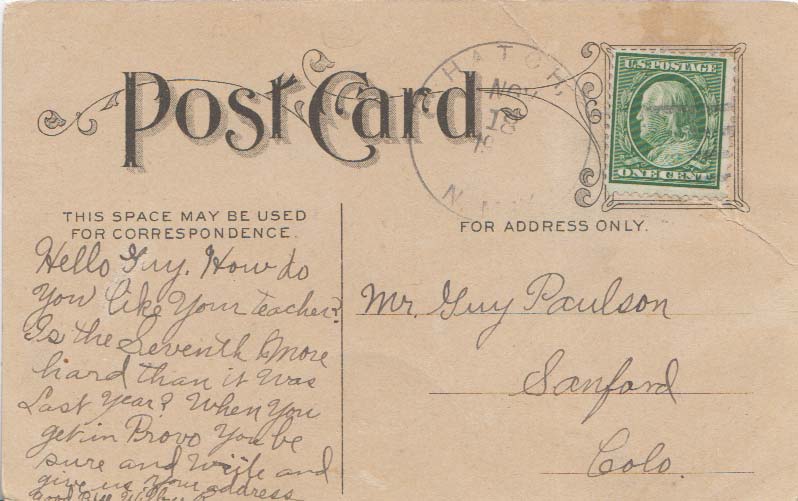 Post Card
HATCH,
NOV
18
19
N. MEX.
U.S. POSTAGE
ONE CENT
THIS SPACE MAY BE USED
FOR CORRESPONDENCE.
FOR ADDRESS ONLY.
Hello Guy. How do
you like Your teacher?
Is the Seventh More
hard than it was
Last Year? When You
get in Provo You be
sure and write and
give us Your address
Good Bye
Mr. Guy Paulson
Sanford
Colo.